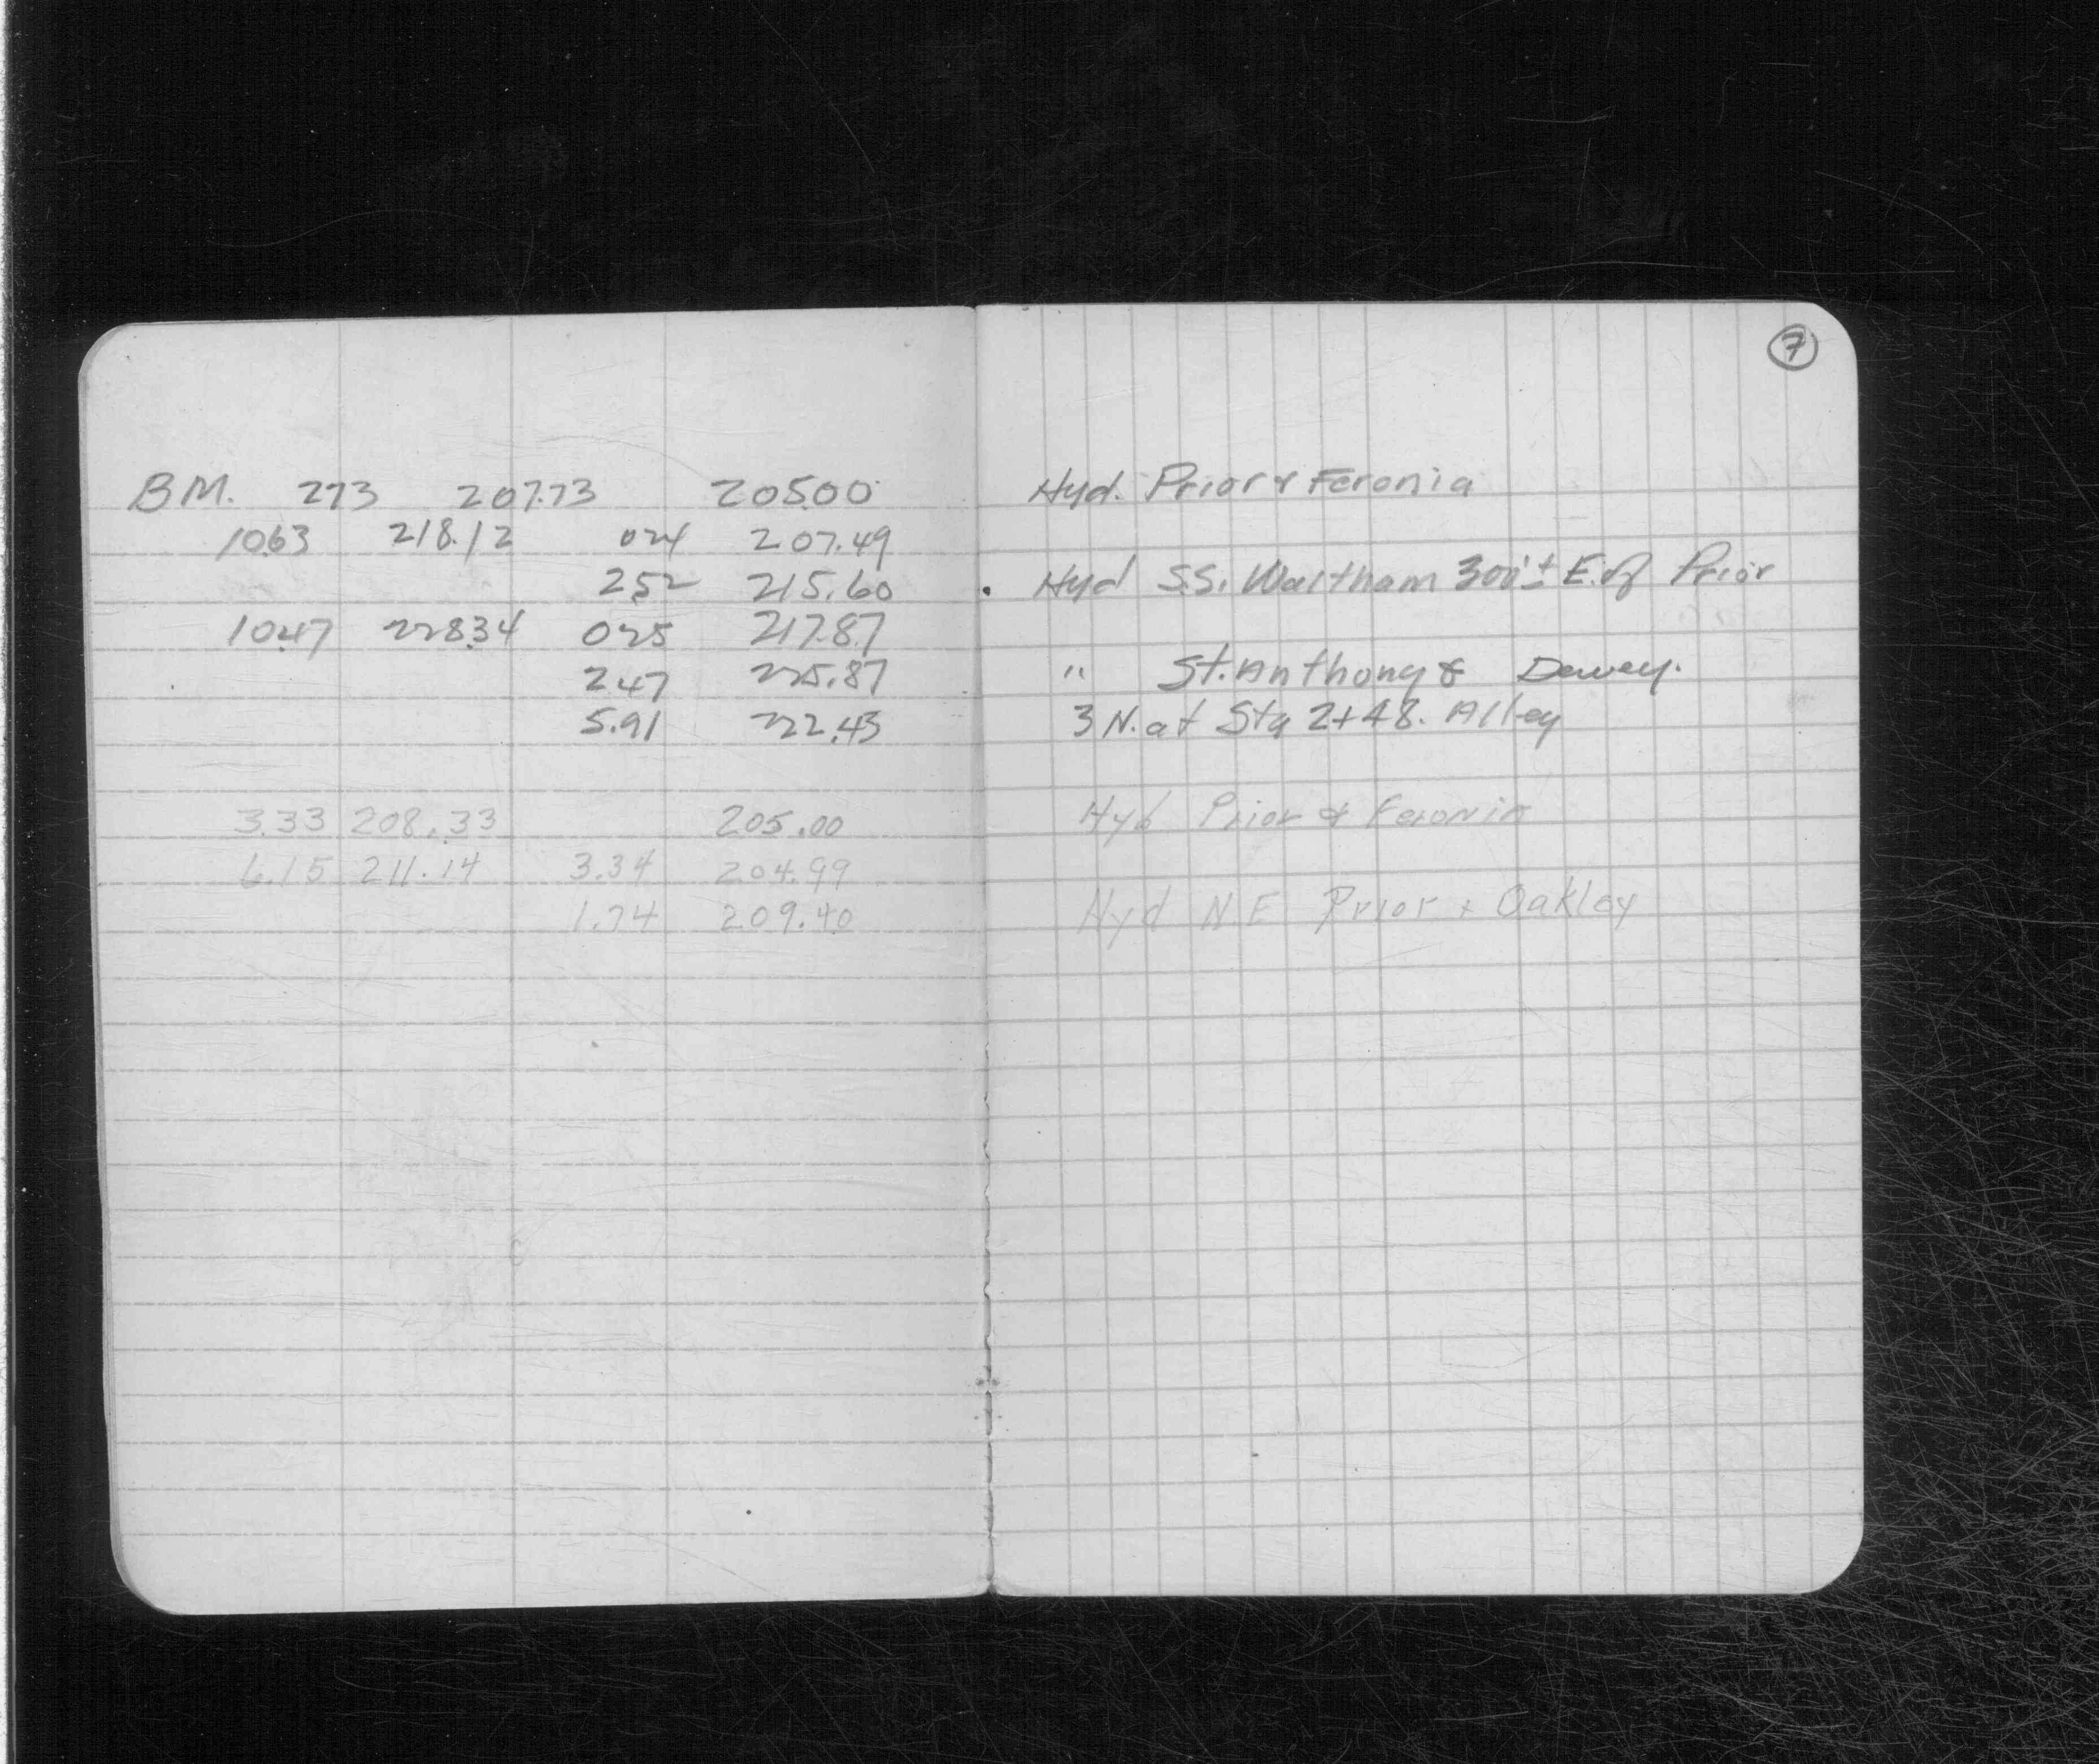 7
BM. 273 207.73 205.00 Hyd. Prior & Feronia
10.63 218.12 024 207.49
252 215.60 Hyd S.S. Waltham 300'± E. of Prior
10.47 228.34 025 217.87
247 225.87 " St. Anthony & Dewey.
5.91 222.43 3 N. at Sta 2+48. Alley
3.33 208.33 205.00 Hyd Prior & Feronia
6.15 211.14 3.34 204.99
1.74 209.40 Hyd N.E Prior + Oakley